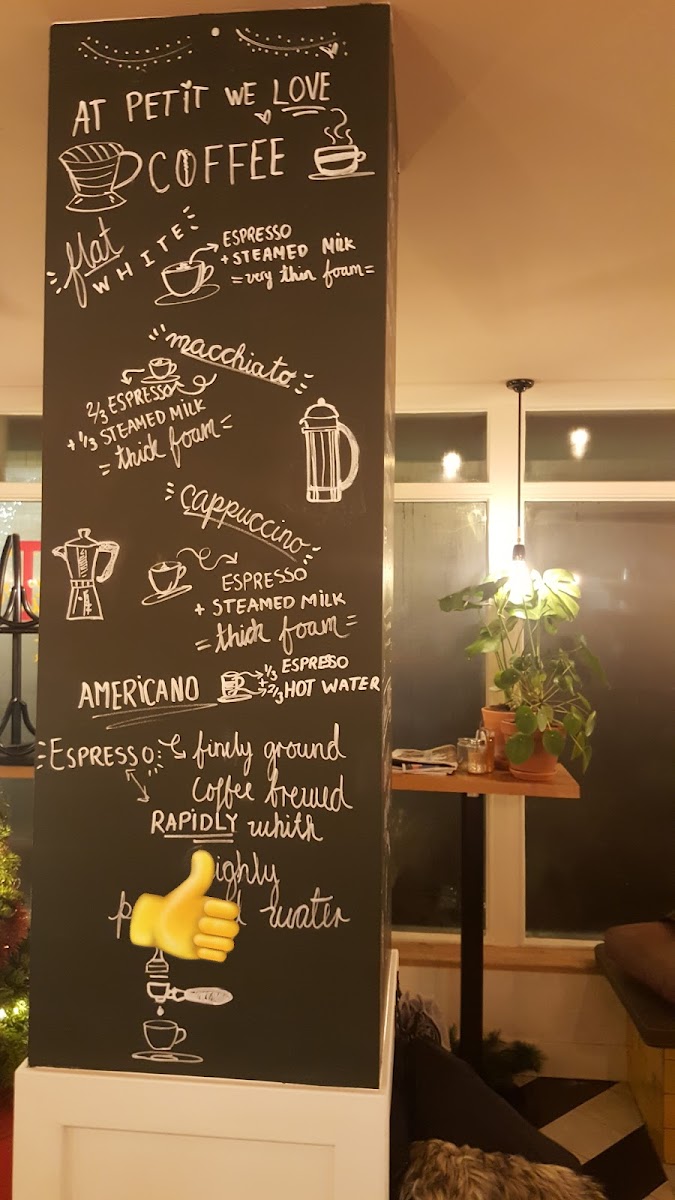 AT PETIT WE LOVE
COFFEE
flat
WHITE
ESPRESSO
+ STEAMED MILK
= very thin foam =
macchiato
2/3 ESPRESSO
+ 1/3 STEAMED MILK
= thick foam =
cappuccino
ESPRESSO
+ STEAMED MILK
= thick foam =
AMERICANO
1/3 ESPRESSO
+ 2/3 HOT WATER
ESPRESSO
finely ground
coffee brewed
RAPIDLY whith
water